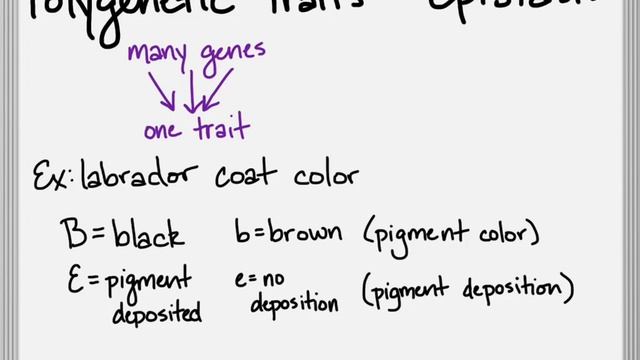 Polygenetic Traits
many genes
one trait
Ex: labrador coat color
B = black b = brown (pigment color)
E = pigment deposited e = no deposition (pigment deposition)